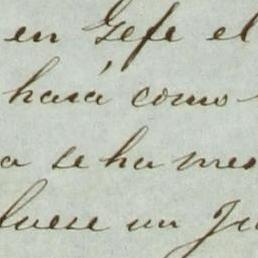 en Gefe el
hará como
a se ha mes
fuese un Ju